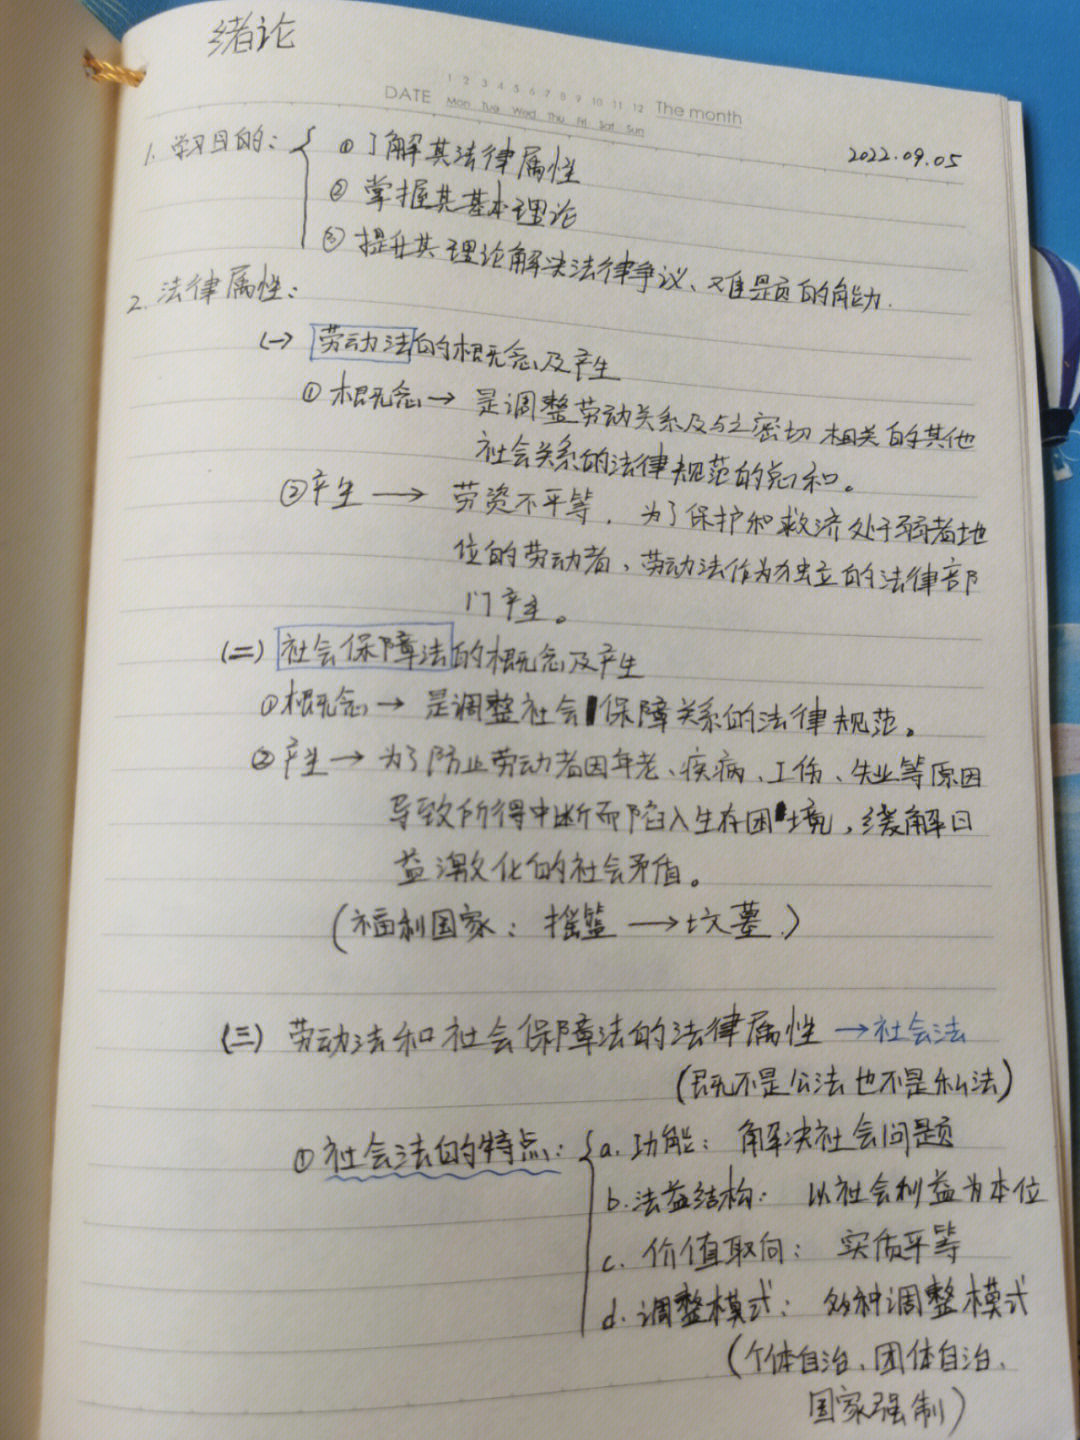 绪论
1 2 3 4 5 6 7 8 9 10 11 12 The month
DATE Mon Tue Wed Thu Fri Sat Sun
2022.09.05
1. 学习目的：
① 了解其法律属性
② 掌握其基本理论
③ 提升其理论解决法律争议、难题的能力.
2. 法律属性：
(一) 劳动法的概念及产生
① 概念 → 是调整劳动关系及与之密切相关的其他
社会关系的法律规范的总和。
② 产生 → 劳资不平等，为了保护和救济处于弱者地
位的劳动者、劳动法作为独立的法律部
门产生。
(二) 社会保障法的概念及产生
① 概念 → 是调整社会保障关系的法律规范。
② 产生 → 为了防止劳动者因年老、疾病、工伤、失业等原因
导致所得中断而陷入生存困境，缓解日
益激化的社会矛盾。
(福利国家：摇篮 → 坟墓.)
(三) 劳动法和社会保障法的法律属性 → 社会法
(既不是公法也不是私法)
① 社会法的特点：
a. 功能：解决社会问题
b. 法益结构：以社会利益为本位
c. 价值取向：实质平等
d. 调整模式：多种调整模式
(个体自治、团体自治、
国家强制)